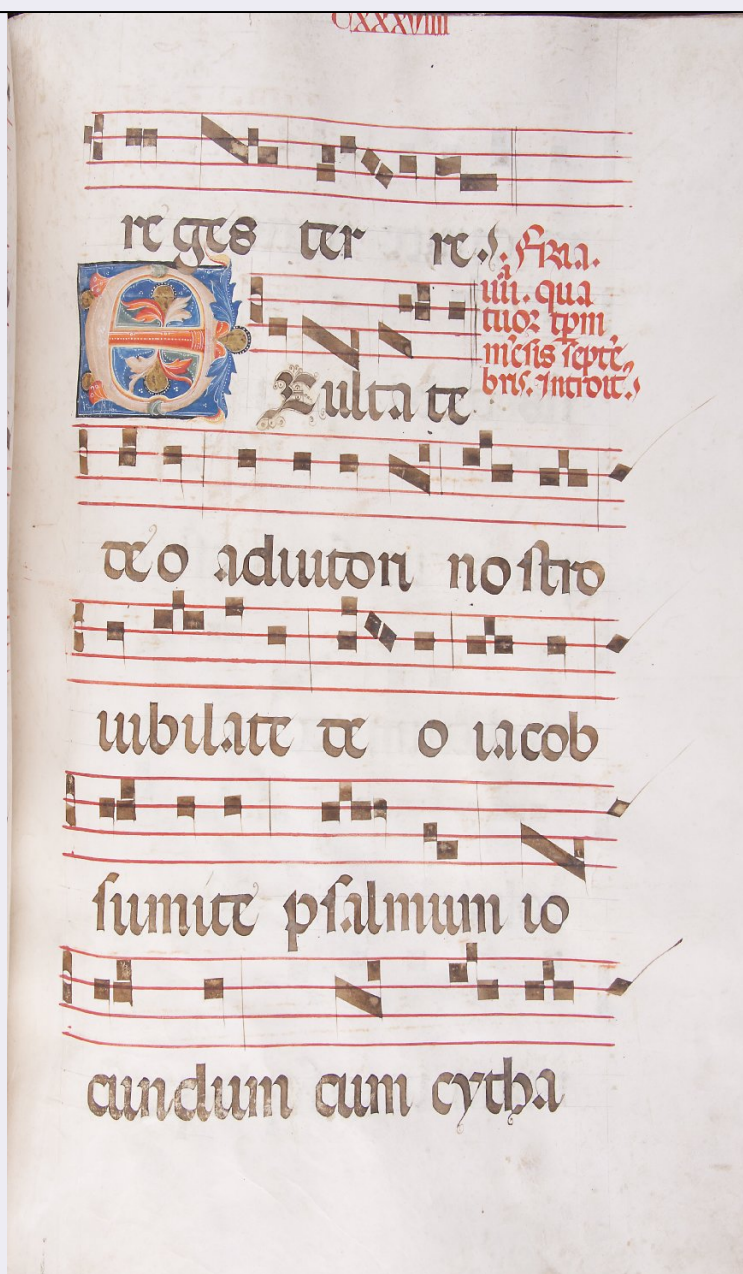 CXXXVIIII
re ges ter re.
.FRIA.
iiii. qua
tuor tpm
mēsis septē
bris. Introit.
EXultate
deo adiutori nostro
iubilate de o iacob
sumite psalmum io
cundum cum cytha